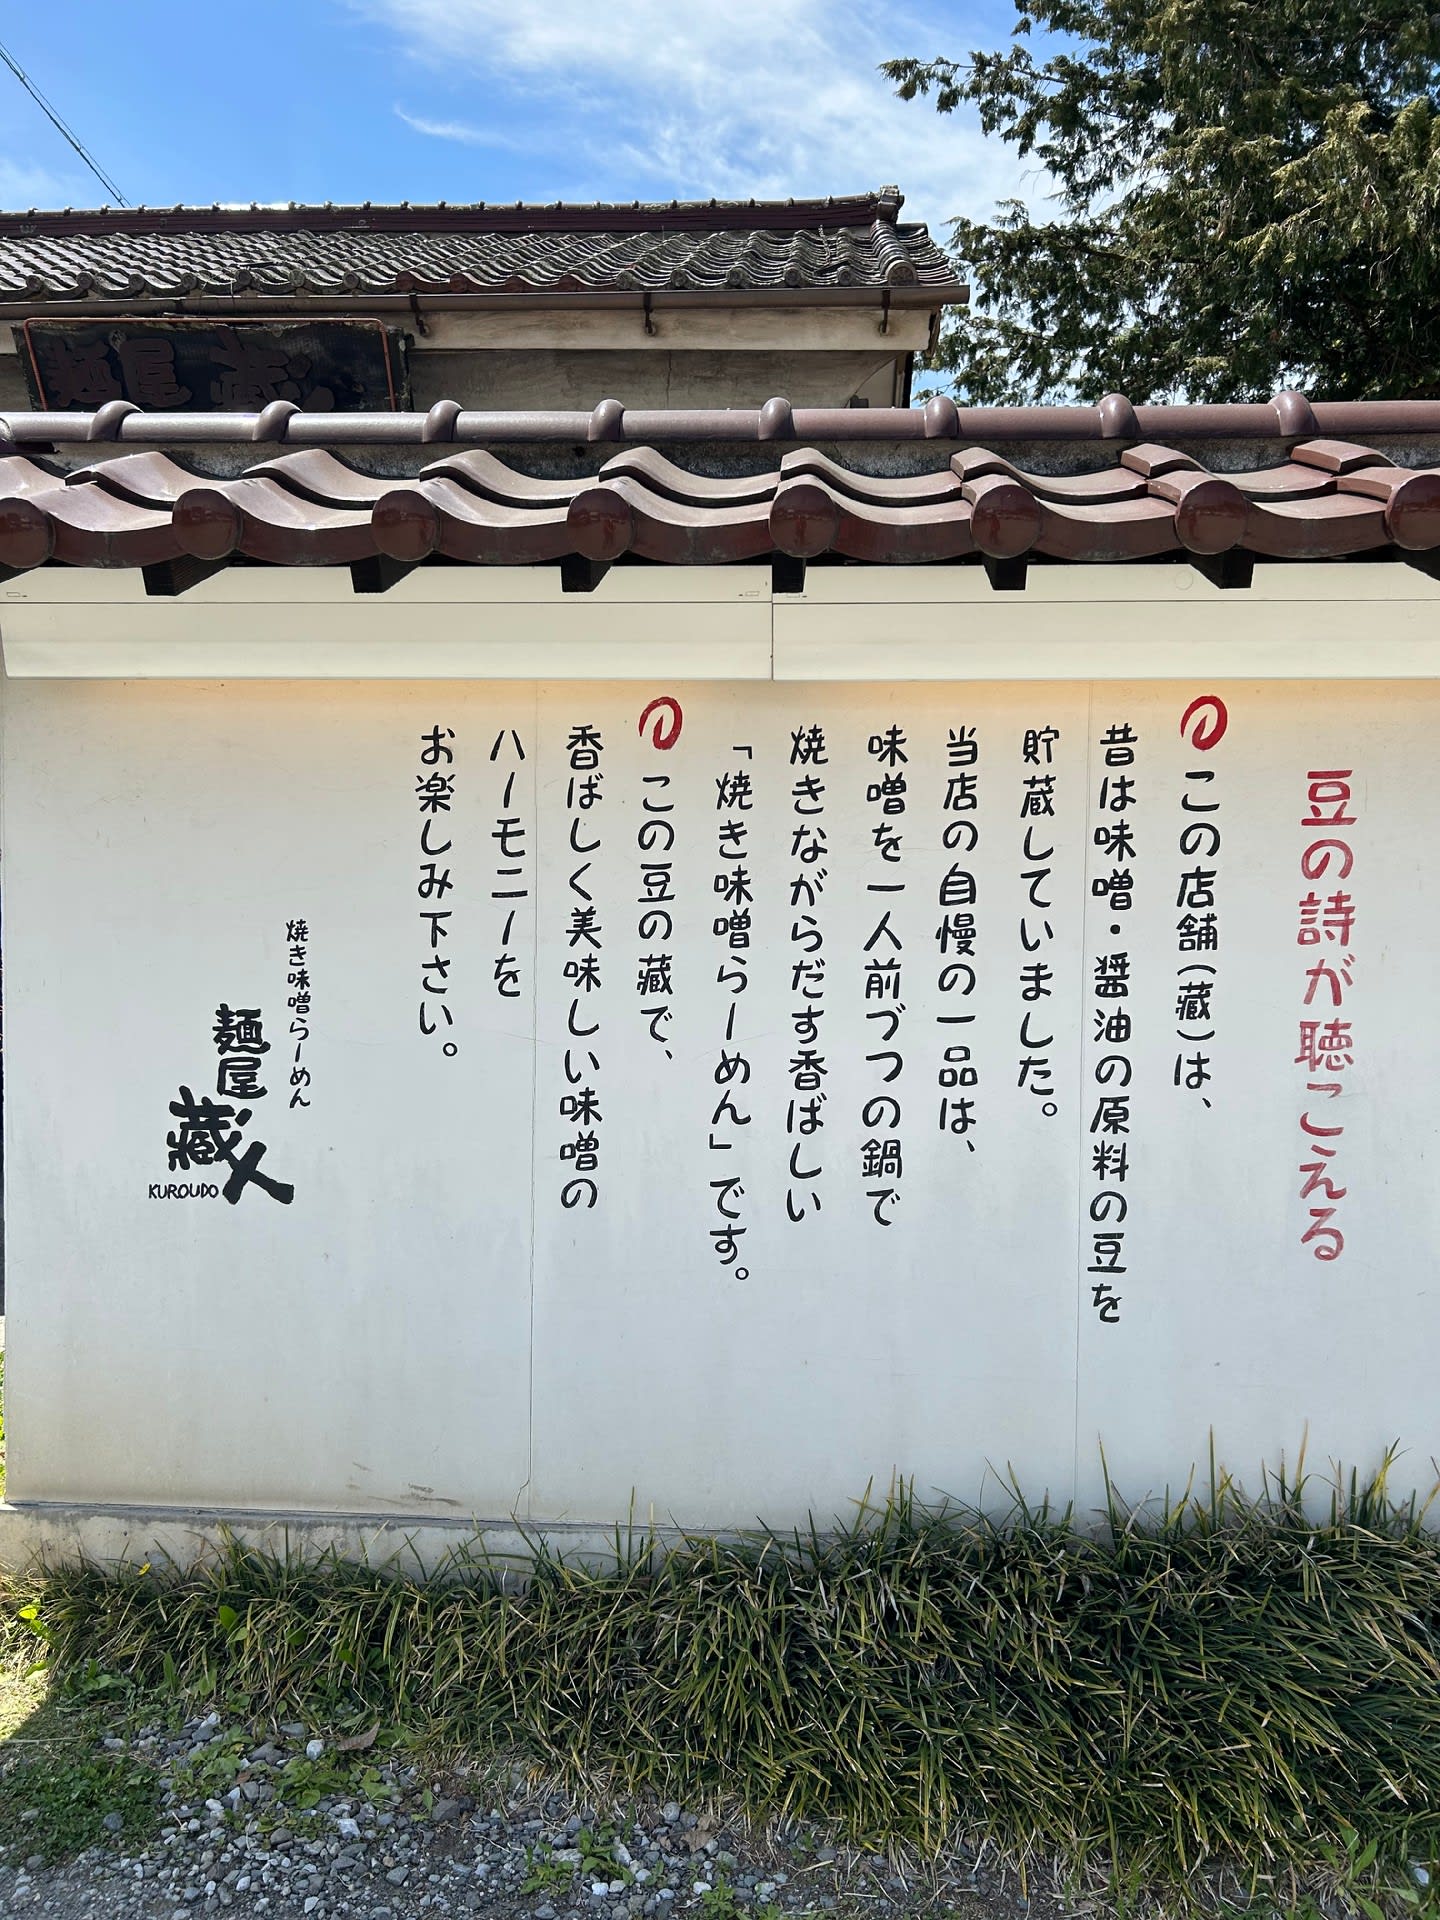 豆の詩が聴こえる
この店舗(蔵)は、
昔は味噌・醤油の原料の豆を
貯蔵していました。
当店の自慢の一品は、
味噌を一人前づつの鍋で
焼きながらだす香ばしい
「焼き味噌らーめん」です。
この豆の蔵で、
香ばしく美味しい味噌の
ハーモニーを
お楽しみ下さい。
焼き味噌らーめん
麺屋
蔵人
KUROUDO
麺屋 蔵人